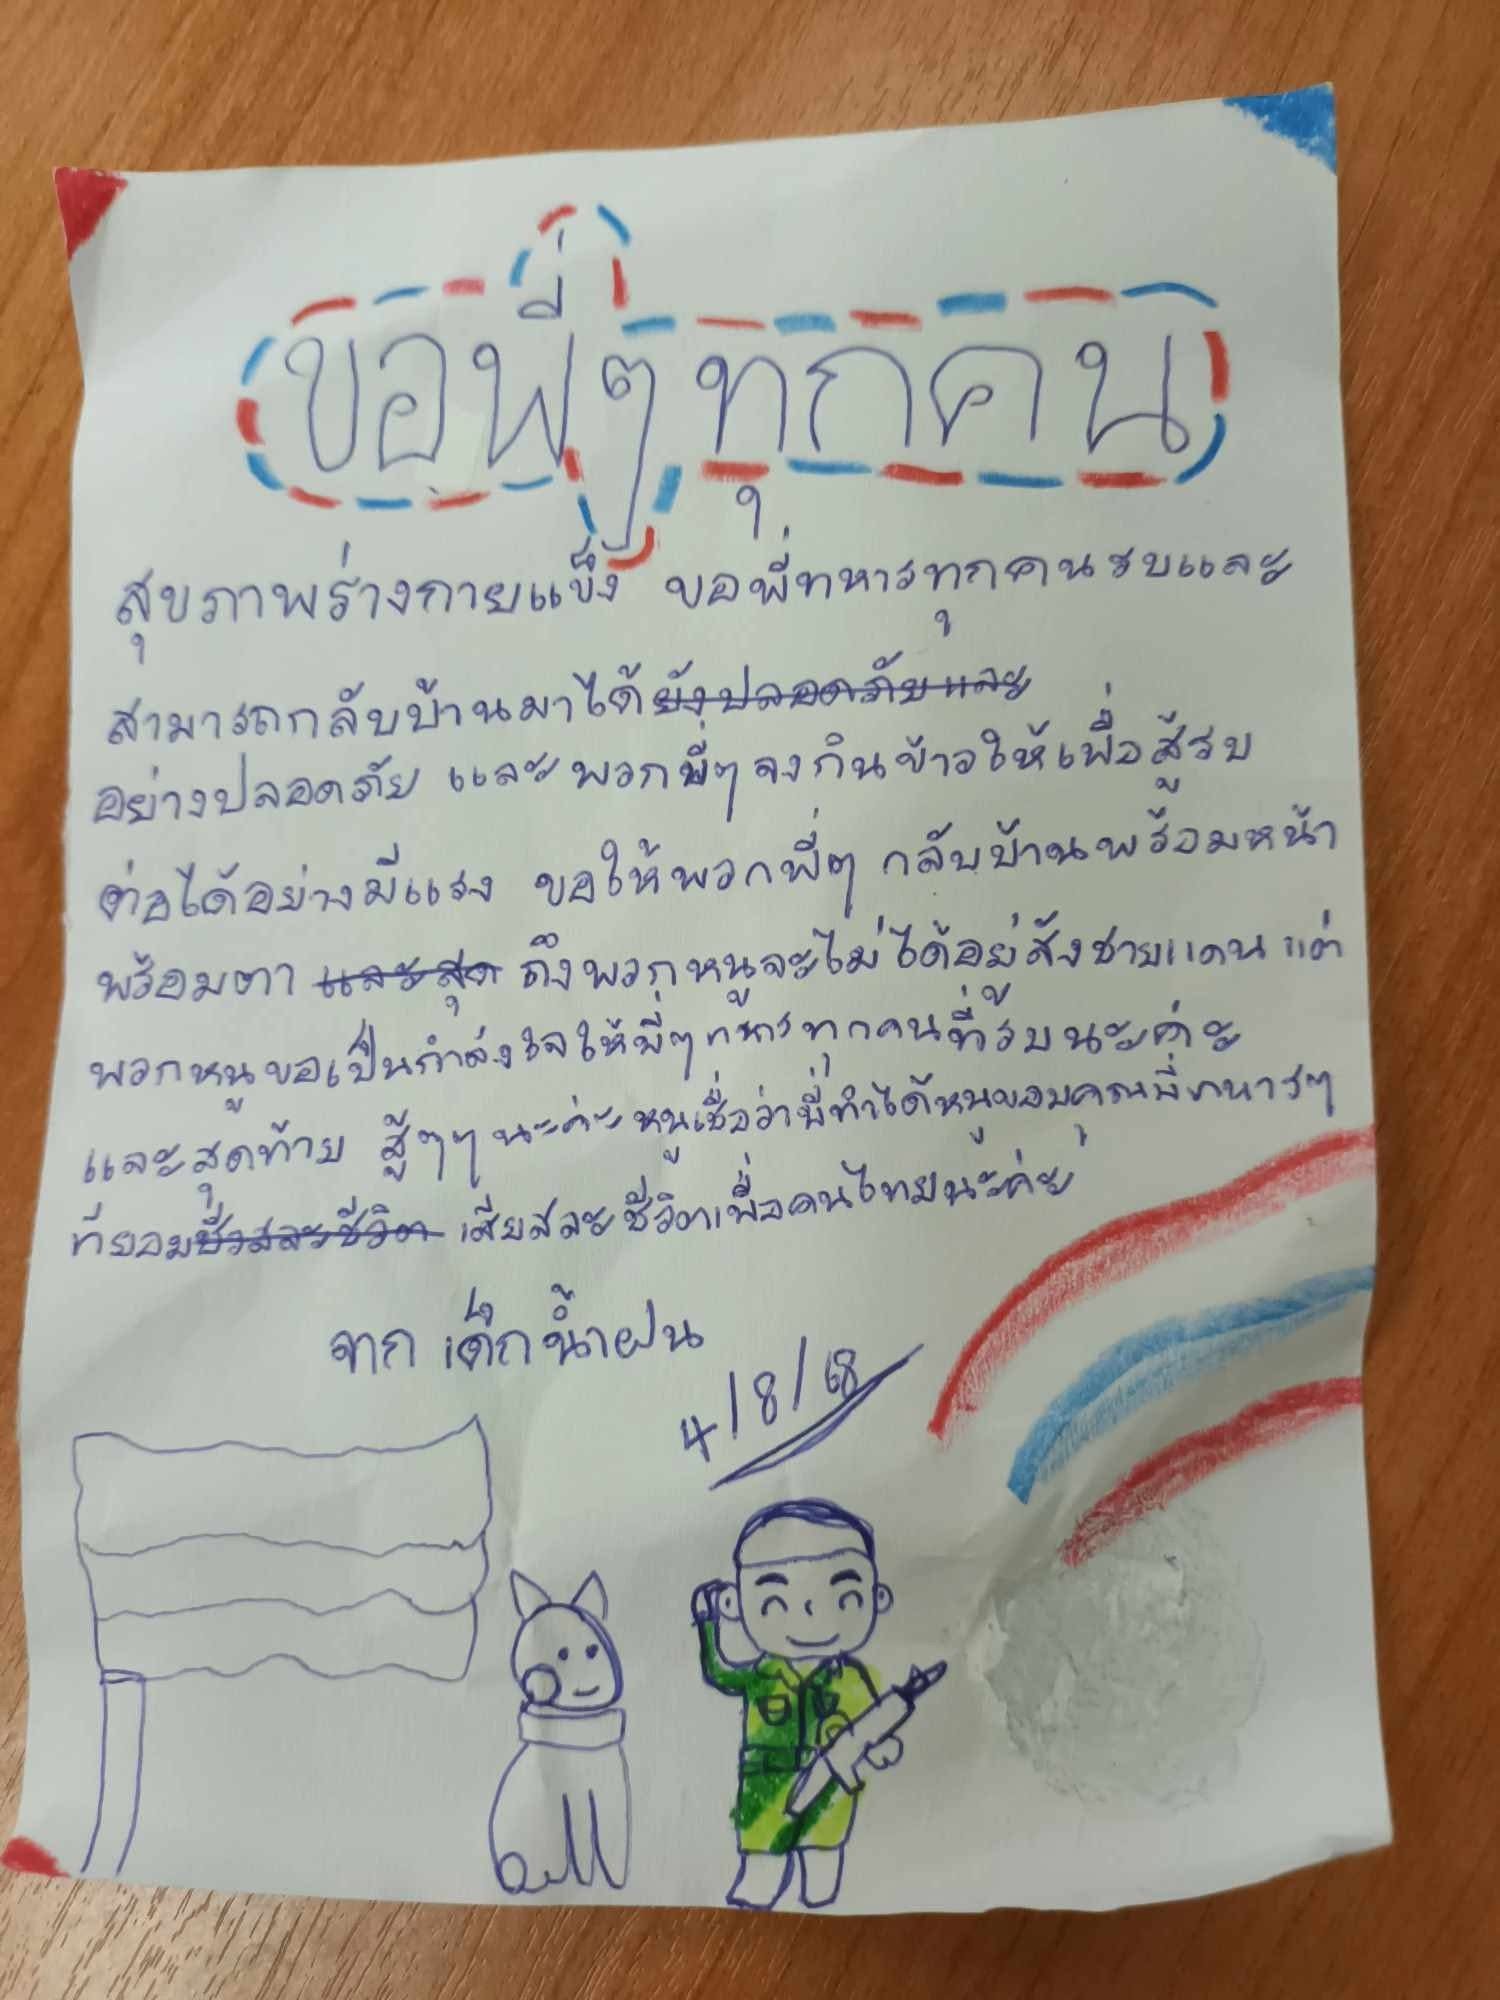 ขอพี่ๆทุกคน
สุขภาพร่างกายแข็ง ขอพี่ทหารทุกคนรบและ
สามารถกลับบ้านมาได้ยังปลอดภัยและ
อย่างปลอดภัย และพวกพี่ๆจงกินข้าวให้เพื่อสู้รบ
ต่อได้อย่างมีแรง ขอให้พวกพี่ๆ กลับบ้านพร้อมหน้า
พร้อมตา และสุด ถึงพวกหนูจะไม่ได้อยู่สังชายแดน แต่
พวกหนูขอเป็นกำลังใจให้พี่ๆทหารทุกคนที่รบนะค่ะ
และสุดท้าย สู้ๆๆนะค่ะหนูเชื่อว่าพี่ทำได้หนูขอบคุณพี่ทหารๆ
ที่ยอมสละชีวิต เสียสละชีวิตเพื่อคนไทยนะค่ะ
จาก เด็กน้ำฝน
4/8/68